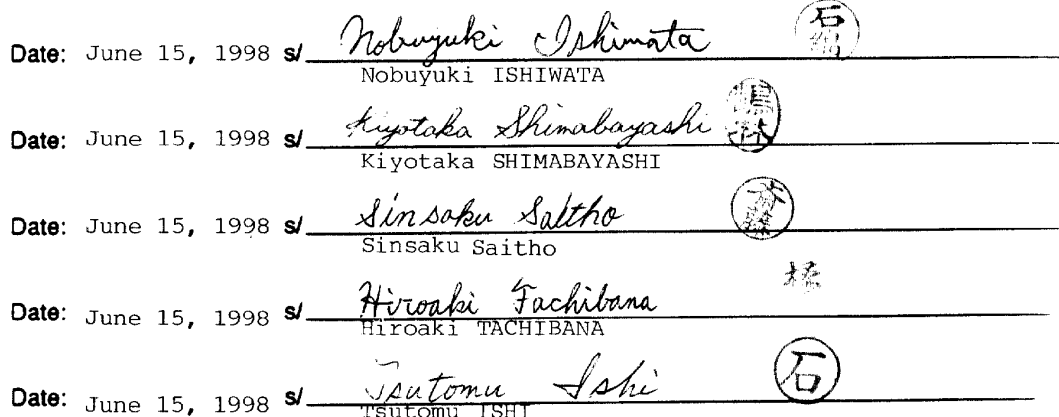 Date: June 15, 1998 s/ Nobuyuki Ishiwata 石綿
Nobuyuki ISHIWATA
Date: June 15, 1998 s/ Kiyotaka Shimabayashi
Kiyotaka SHIMABAYASHI
Date: June 15, 1998 s/ Sinsaku Saitho
Sinsaku Saitho
Date: June 15, 1998 s/ Hiroaki Tachibana 橘
Hiroaki TACHIBANA
Date: June 15, 1998 s/ Tsutomu Ishi 石
Tsutomu ISHI